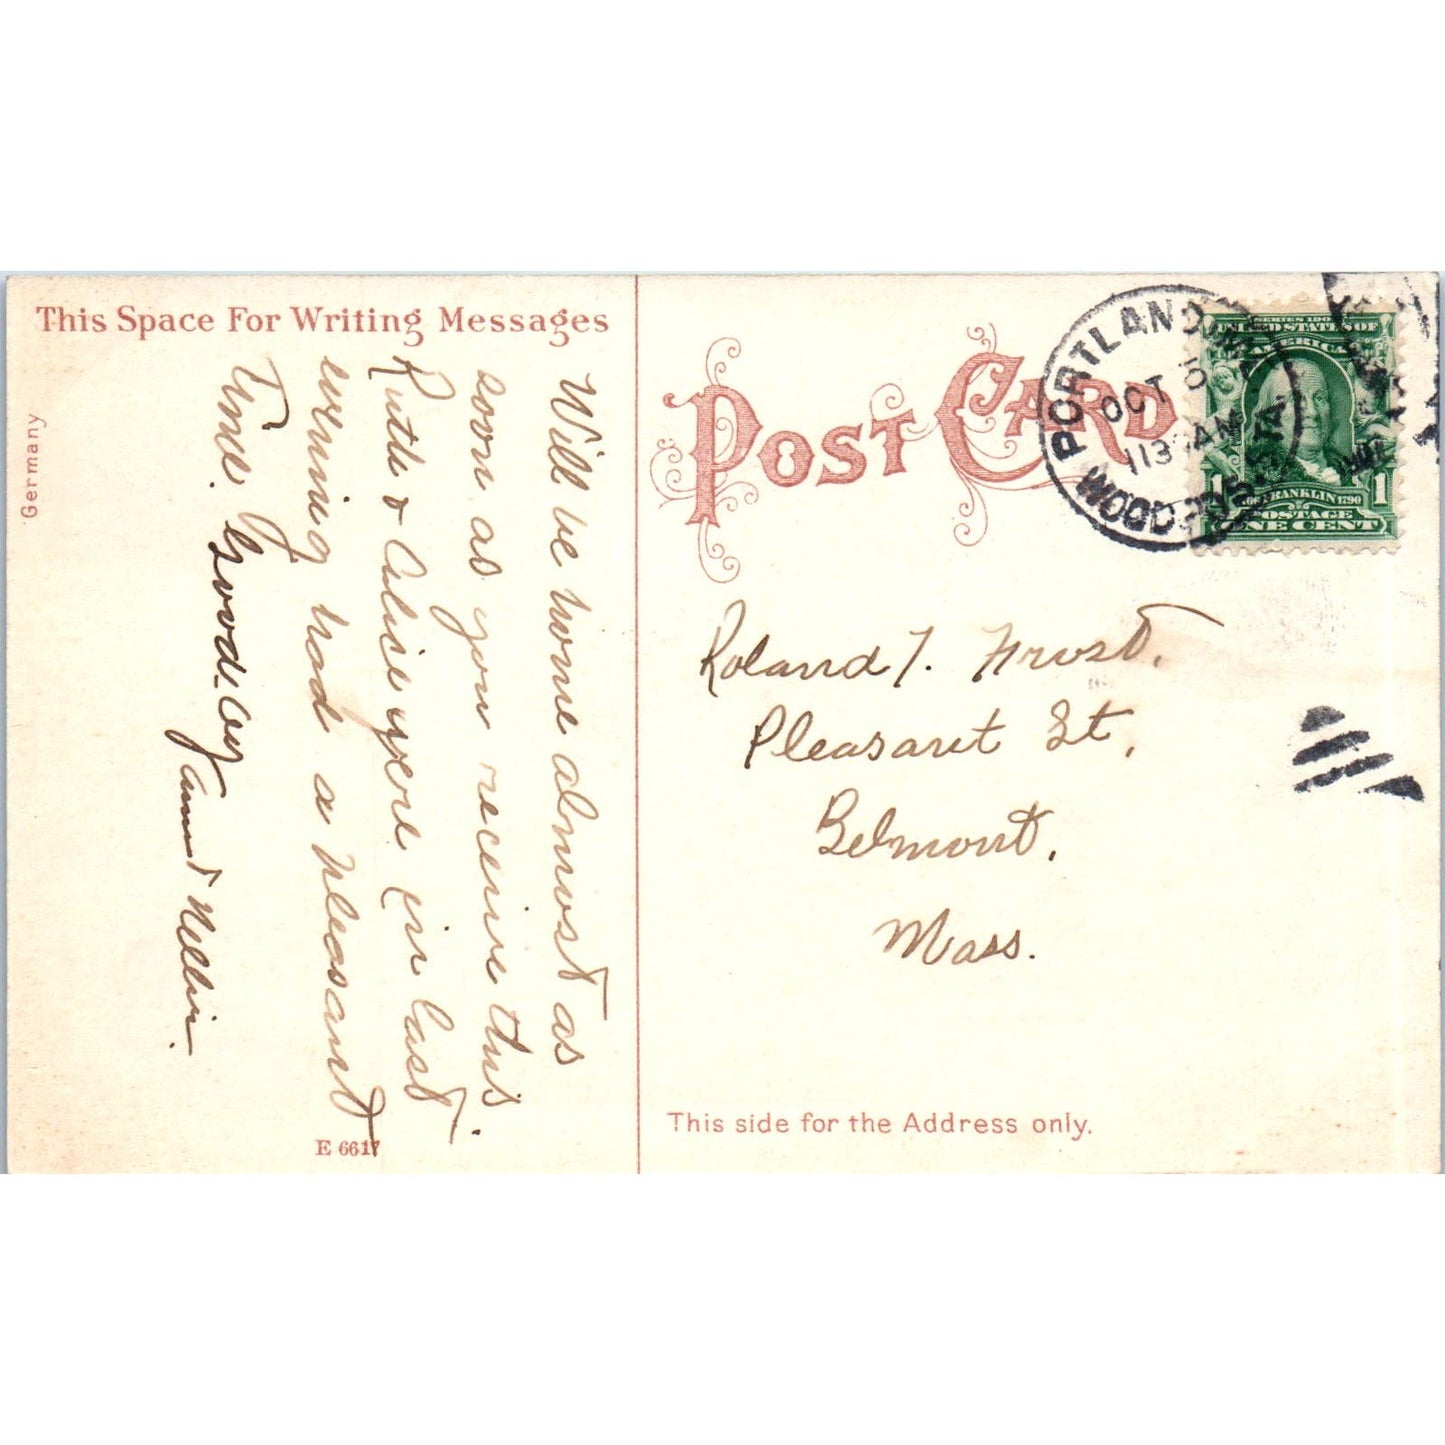 This Space For Writing Messages
Will be home almost as
soon as you receive this.
Ruth & Alice were in last
evening had a pleasant
time. Good-by
Aunt Nellie.
Germany
E 6617
POST CARD
PORTLAND,
OCT 5
1130AM
WOODFDS. STA.
SERIES 1902
UNITED STATES OF
AMERICA
1 FRANKLIN 1790 1
POSTAGE
ONE CENT
Roland T. Frost,
Pleasant St,
Belmont,
Mass.
This side for the Address only.